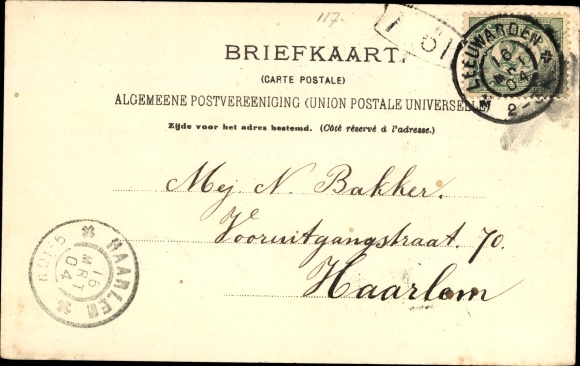 117.
BRIEFKAART.
(CARTE POSTALE)
ALGEMEENE POSTVEREENIGING (UNION POSTALE UNIVERSELLE)
Zijde voor het adres bestemd. (Côté réservé à l'adresse.)
LEEUWARDEN
16
MRT
04
Mej N. Bakker.
Vooruitgangstraat 70.
Haarlem
HAARLEM
16
MRT
04